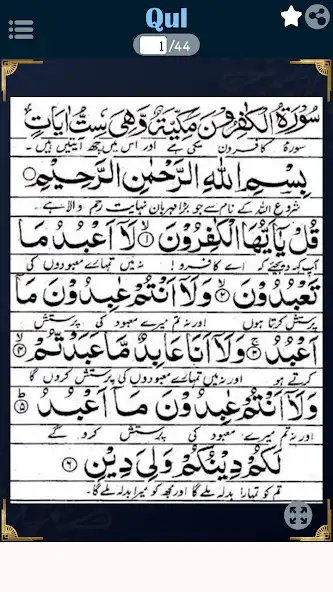 Qul
1 /44
سُوْرَةُ الْكٰفِرُوْنَ مَكِّيَّةٌ وَّهِيَ سِتُّ اٰيَاتٍ
سورۃ کافرون مکی ہے اور اس میں چھ آیتیں ہیں ۔
بِسْمِ اللّٰهِ الرَّحْمٰنِ الرَّحِيْمِ
شروع اللہ کے نام سے جو بڑا مہربان نہایت رحم والا ہے ۔
قُلْ يٰٓاَيُّهَا الْكٰفِرُوْنَ ۝١ لَآ اَعْبُدُ مَا
آپ کہہ دیجئے کہ اے کافرو ! نہ میں تمہارے معبودوں کی
تَعْبُدُوْنَ ۝٢ وَلَآ اَنْتُمْ عٰبِدُوْنَ مَآ
پرستش کرتا ہوں اور نہ تم میرے معبود کی پرستش
اَعْبُدُ ۝٣ وَلَآ اَنَا عَابِدٌ مَّا عَبَدْتُّمْ ۝٤
کرتے ہو اور نہ میں تمہارے معبودوں کی پرستش کروں گا
وَلَآ اَنْتُمْ عٰبِدُوْنَ مَآ اَعْبُدُ ۝٥
اور نہ تم میرے معبود کی پرستش کرو گے
لَكُمْ دِيْنُكُمْ وَلِيَ دِيْنِ ۝٦
تم کو تمہارا بدلہ ملے گا اور مجھ کو میرا بدلہ ملے گا ۔